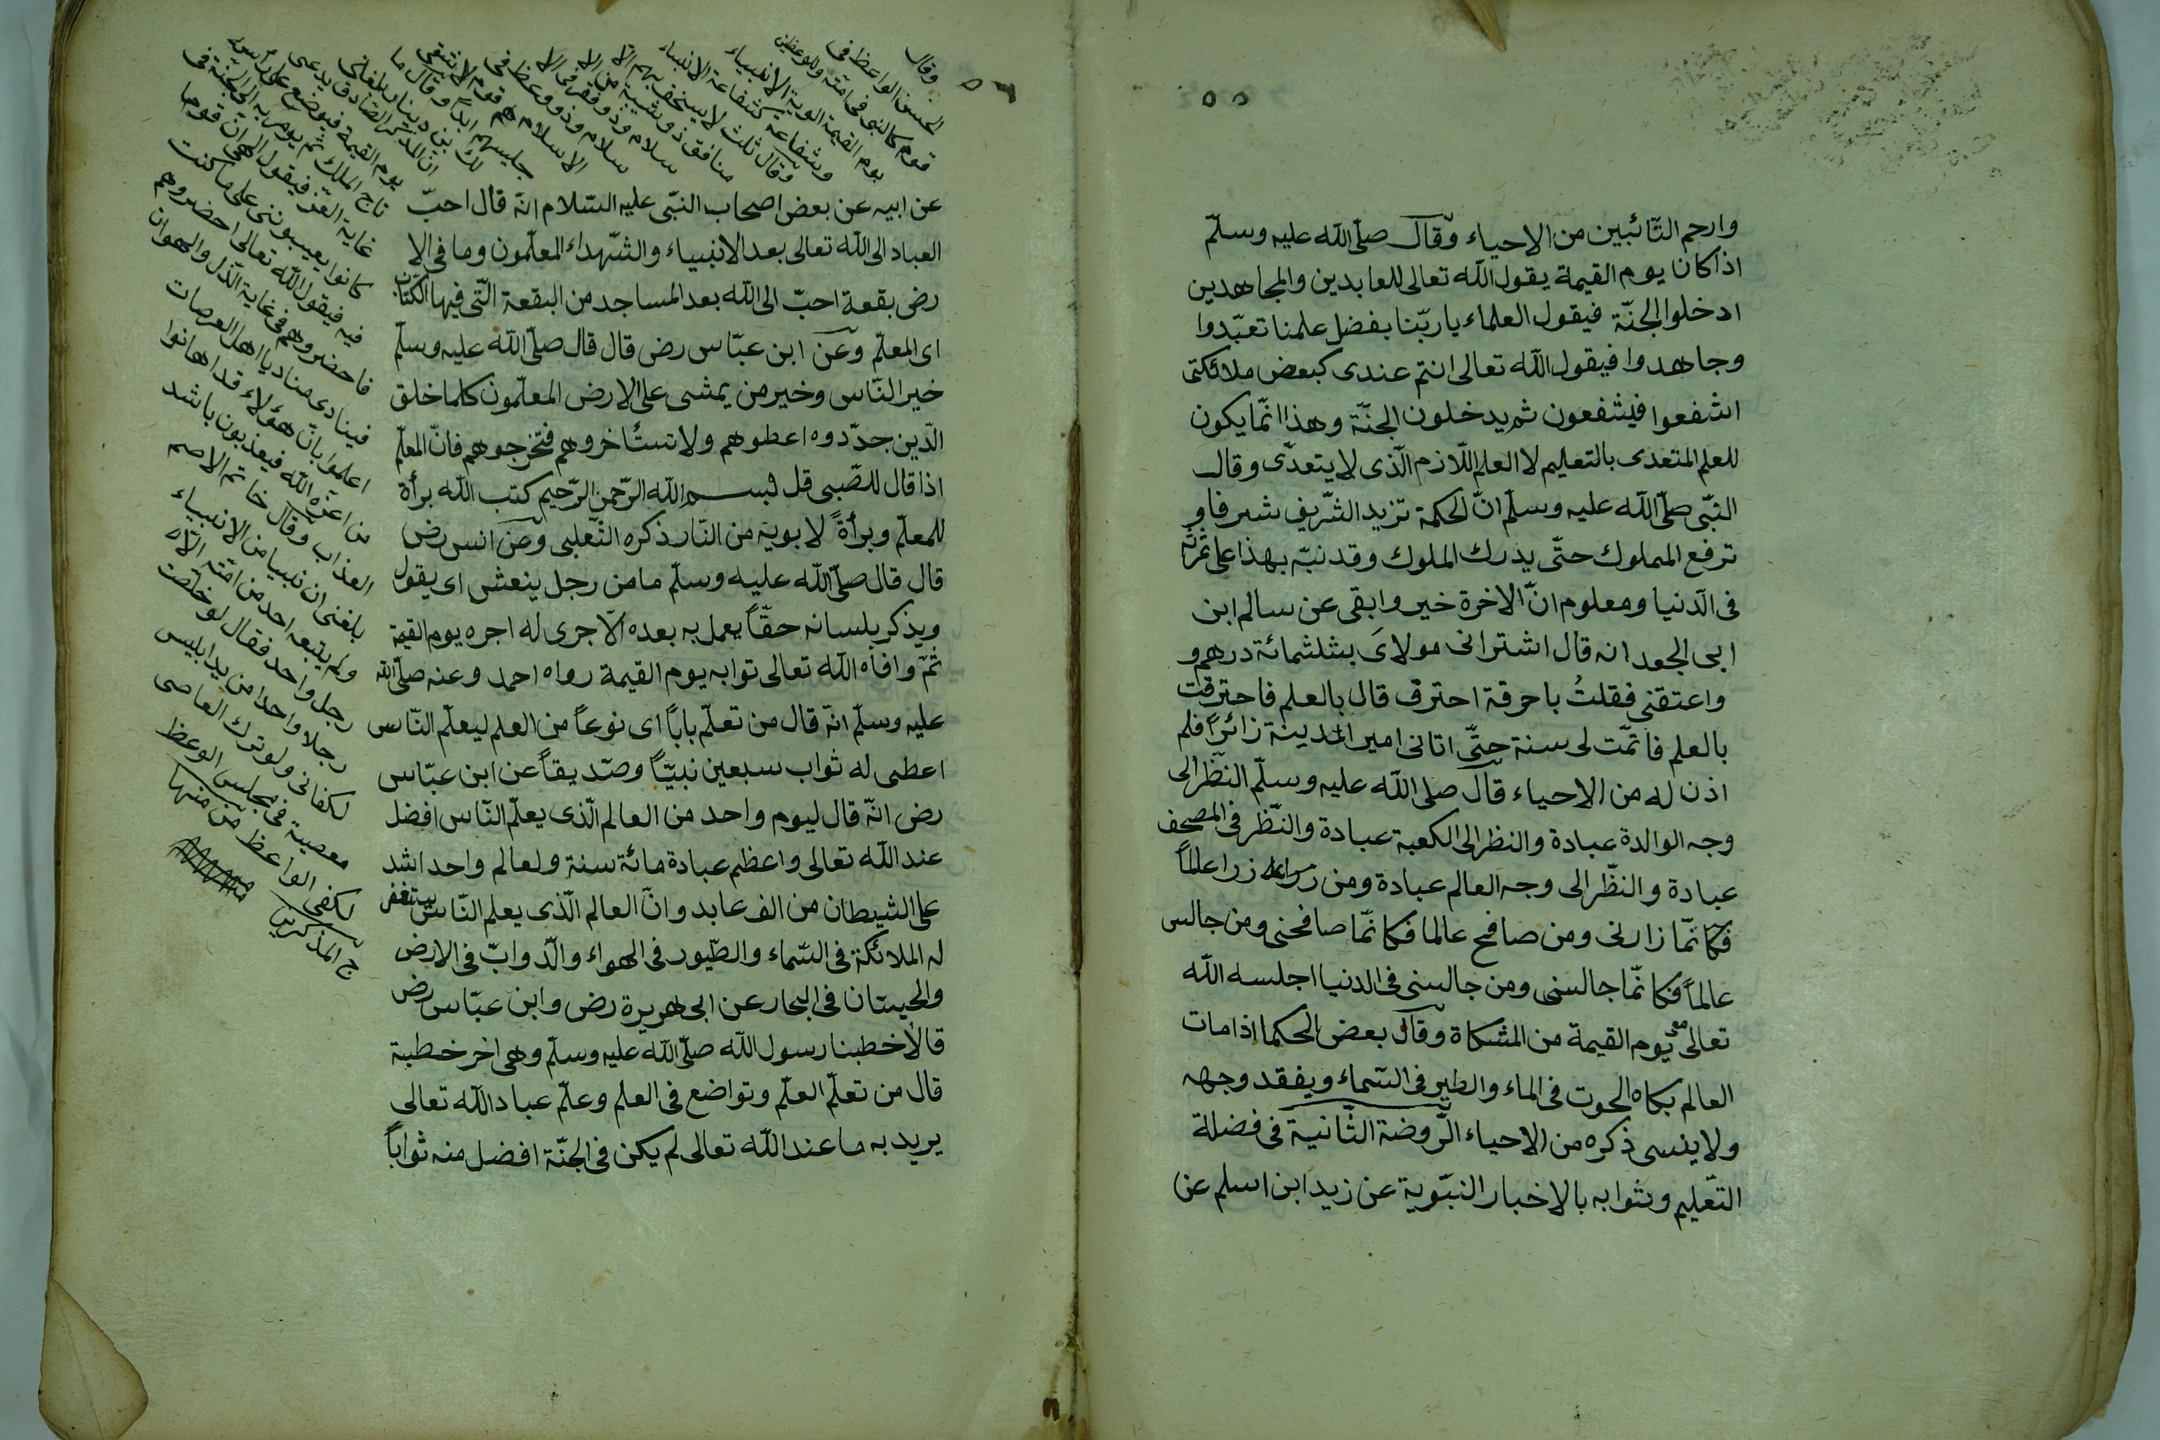 ٥٥
وارحم التّائبين من الاحياء وقال صلّى اللّه عليه وسلّم
اذا كان يوم القيمة يقول اللّه تعالى للعابدين والمجاهدين
ادخلوا الجنّة فيقول العلماء يا ربّنا بفضل علمنا تعبّدوا
وجاهدوا فيقول اللّه تعالى انتم عندى كبعض ملائكتى
اشفعوا فيشفعون ثم يدخلون الجنّة وهذا انّما يكون
للعلم المتعدى بالتعليم لا العلم اللّازم الّذى لا يتعدّى وقال
النبّى صلّى اللّه عليه وسلّم انّ الحكمة تزيد الشّريف شرفا و
ترفع المملوك حتّى يدرك الملوك وقد نبّه بهذا على ثمرته
فى الدّنيا ومعلوم انّ الاخرة خير وابقى عن سالم ابن
ابى الجعد انه قال اشترانى مولاىَ بثلثمائة درهم و
واعتقنى فقلتُ باحرفة احترف قال بالعلم فاحترفت
بالعلم فاتمّت لى سنة حتّى اتانى امير المدينة زائرًا فلم
اذن له من الاحياء قال صلى اللّه عليه وسلّم النظّر الى
وجه الوالدة عبادة والنظر الى الكعبة عبادة والنّظر فى المصحف
عبادة والنظّر الى وجه العالم عبادة ومن زار عالماً
فكانّما زارنى ومن صافح عالما فكانّما صافحنى ومن جالس
عالماً فكانّما جالسنى ومن جالسنى فى الدنيا اجلسه اللّه
تعالى معى يوم القيمة من المشكاة وقال بعض الحكما اذا مات
العالم بكاه الحوت فى الماء والطير فى السّماء ويفقد وجهه
ولا ينسى ذكره من الاحياء الرّوضة الثّانية فى فضلة
التعّليم وثوابه بالاخبار النبّوية عن زيد ابن اسلم عن
٥٦
عن ابيه عن بعض اصحاب النبّى عليه السّلام انّه قال احبّ
العباد الى اللّه تعالى بعد الانبياء والشّهداء المعلّمون وما فى الا
رض بقعة احبّ الى اللّه بعد المساجد من البقعة الّتى فيها الكتّاب
اى المعلّم وعن ابن عبّاس رض قال قال صلّى اللّه عليه وسلّم
خير النّاس وخير من يمشى على الارض المعلّمون كلما خلق
الدّين جدّدوه اعطوهم ولا تستأخروهم فتخرجوهم فانّ المعلّم
اذا قال للصّبى قل بسم اللّه الرّحمن الرّحيم كتب اللّه برأة
للمعلّم وبرأةً لابويه من النّار ذكره الثّعلبى وعن انس رض
قال قال صلّى اللّه عليه وسلّم ما من رجل ينعش اى يقول
ويذكر بلسانه حقّاً يعمل به بعده الّا جرى له اجره يوم القيمة
ثمّ وافاه اللّه تعالى ثوابه يوم القيمة رواه احمد وعنه صلّى اللّه
عليه وسلّم انّه قال من تعلّم باباً اى نوعاً من العلم ليعلّم النّاس
اعطى له ثواب سبعين نبيّاً وصدّيقاً عن ابن عبّاس
رض انّه قال ليوم واحد من العالم الّذى يعلّم النّاس افضل
عند اللّه تعالى واعظم عبادة مائة سنة ولعالم واحد اشد
على الشيطان من الف عابد وانّ العالم الّذى يعلم النّاس يستغفر
له الملائكة فى السّماء والطّيور فى الهواء والدّوابّ فى الارض
والحيتان فى البحار عن ابى هريرة رض وابن عبّاس رض
قالا خطبنا رسول اللّه صلّى اللّه عليه وسلّم وهى اخر خطبة
قال من تعلّم العلّم وتواضع فى العلم وعلّم عباد اللّه تعالى
يريد به ما عند اللّه تعالى لم يكن فى الجنّة افضل منه ثواباً
وقال
الحسن الواعظ فى
قوم كالنبى فى امّته وللواعظين
يوم القيمة الوية الانبياء
وشفاعة كشفاعة الانبياء
وقال ثلث لا يستخف بهم الّا
منافق ذو شيبة من الا
سلام وذو فقر فى الا
سلام وذو وعظ فى
الاسلام هم قوم لا يشقى
جليسهم ابداً وقال ما
لك بن دينار بلغنى
انّ للذكر الصّادق يدعى
يوم القيمة فيوضع على رأسه
تاج الملك ثم يؤمر به الى الجنة فى
غاية العزّ فيقول الهى انّ قوما
كانوا يعيبوننى على ما كنت
فيه فيقول اللّه تعالى احضروهم
فاحضروهم فى غاية الذّل والهوان
فينادى مناد يا اهل العرصات
اعلموا بانّ هؤلاء قد اهانوا
من اعزّه اللّه فيعذبون باشد
العذاب وقال خاتم الاصم
بلغنى ان نبيا من الانبياء
ولم يتبعه احد من امّته الّا
رجل واحد فقال لو خلّصت
رجلا واحدا من يد ابليس
لكفانى ولو ترك العاصى
معصية فى مجلس الوعظ
لكفى الواعظ من منها
ج المذكرين